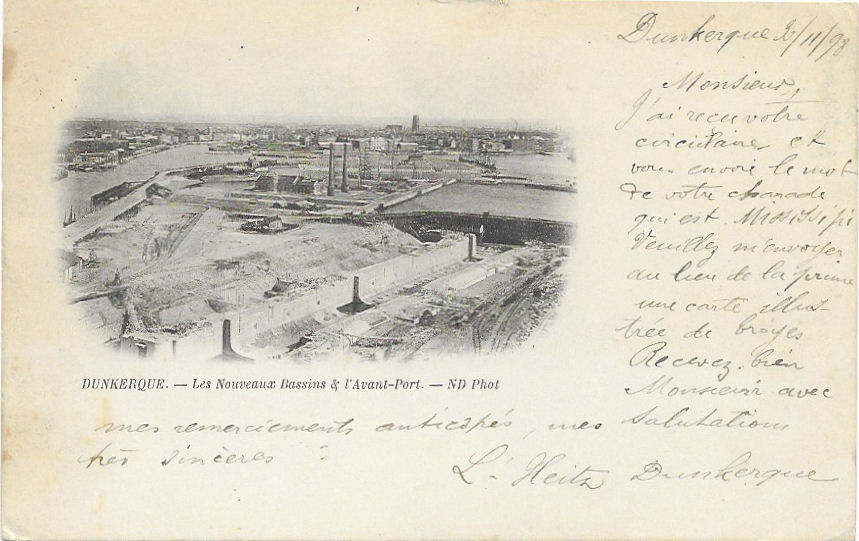 Dunkerque 3/11/98
Monsieur,
J'ai reçu votre
circulaire et
vous envoie le mot
de votre charade
qui est Missisipi
Veuillez m'envoyer
au lieu de la prime
une carte illus-
trée de
Recevez bien
Monsieur avec
mes remerciements anticipés, mes salutations
très sincères
L. Heitz Dunkerque
DUNKERQUE. — Les Nouveaux Bassins & l'Avant-Port. — ND Phot